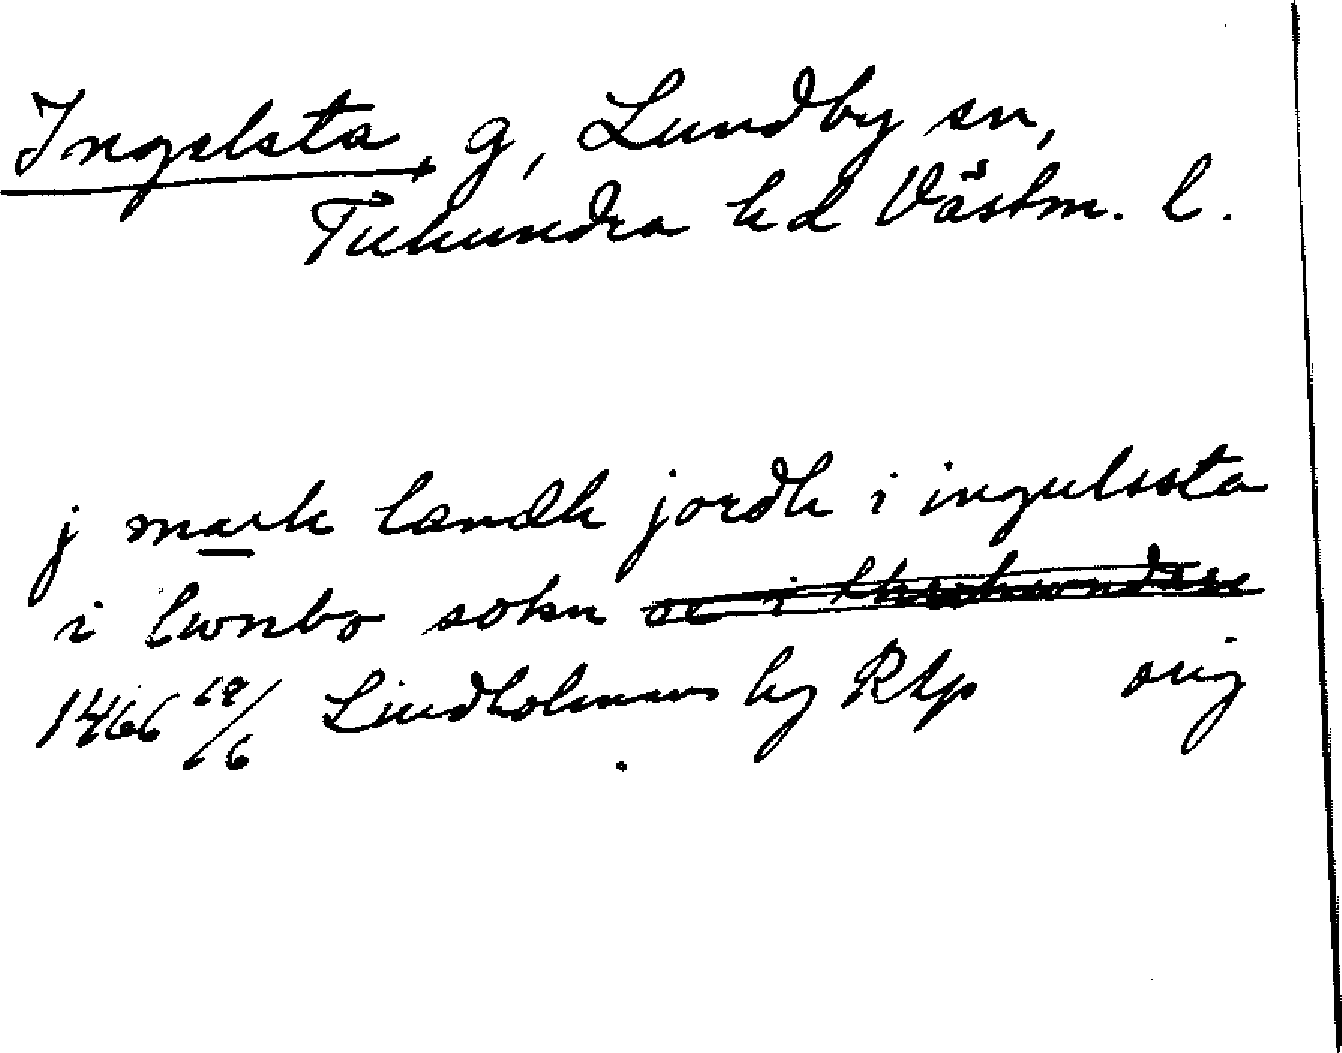 Ingelsta, g, Lundby sn,
Tuhundra hd Västm. l.
j mark landh jordh i ingulssta
i lwnbo sokn
1466 18/6 Lindholmens hg Rkp orig